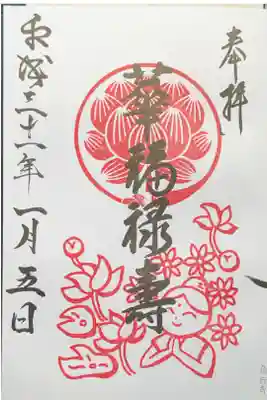 奉拝
華福禄寿
平成三十一年一月五日